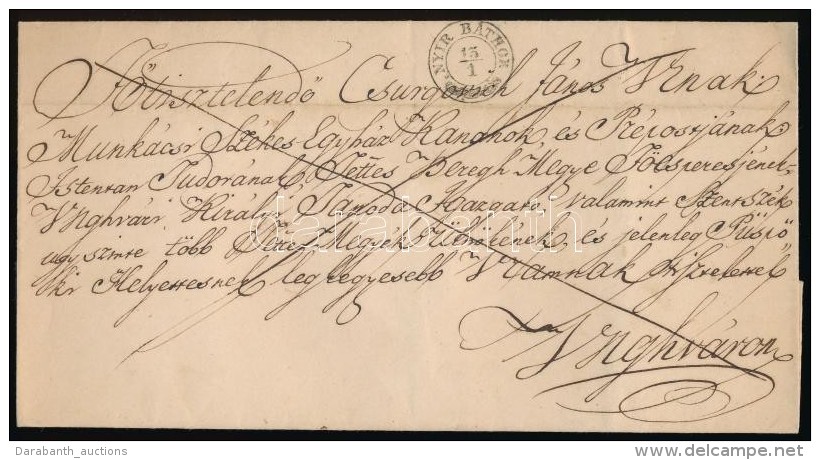 NYIR BÁTHOR
15
1
Főtisztelendő Csurgovich János Urnak:
Munkácsi Székes Egyház Kanonok és Prépostjának
Istentan Tudorának, Tettes Beregh Megye Főesperesjének
Unghvári Királyi Tanoda Igazgató valamint Szentszék
ugy szinte több Megyék Ülnökének, és jelenleg Püspö
ki Helyettesnek leg kegyesebb Uramnak tisztelettel
Unghváron
darabanth
Darabanth_auctions
delcampe.net